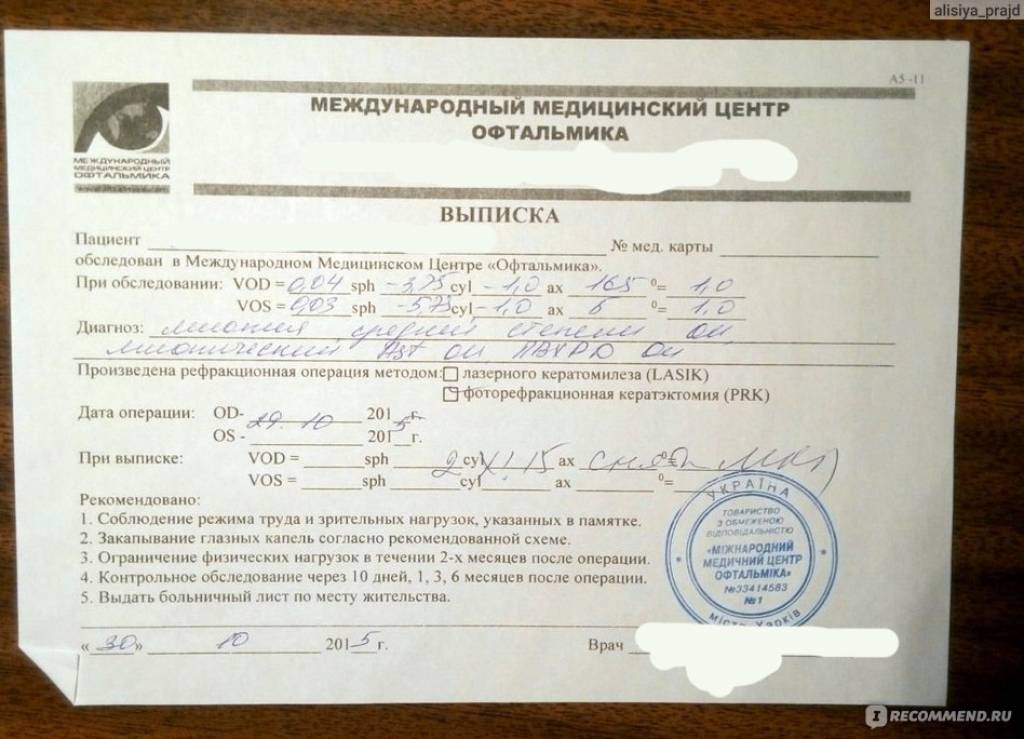 alisiya_prajd
А5-11
МЕЖДУНАРОДНЫЙ МЕДИЦИНСКИЙ ЦЕНТР
ОФТАЛЬМИКА
МЕЖДУНАРОДНЫЙ
МЕДИЦИНСКИЙ ЦЕНТР
ОФТАЛЬМИКА
ВЫПИСКА
Пациент № мед. карты
обследован в Международном Медицинском Центре «Офтальмика».
При обследовании: VOD = 0,04 sph -3,75 cyl -1,0 ax 165 º= 1,0
VOS = 0,03 sph -5,75 cyl -1,0 ax º= 1,0
Диагноз: миопия средней степени ои
миопический Ast ои ПВХРД ои
Произведена рефракционная операция методом: лазерного кератомилеза (LASIK)
фоторефракционная кератэктомия (PRK)
Дата операции: OD- 29.10 2015 г.
OS - 201 г.
При выписке: VOD = sph 2 cyl XI 15 ax снять МКЛ
VOS = sph cyl ax º=
Рекомендовано:
1. Соблюдение режима труда и зрительных нагрузок, указанных в памятке.
2. Закапывание глазных капель согласно рекомендованной схеме.
3. Ограничение физических нагрузок в течении 2-х месяцев после операции.
4. Контрольное обследование через 10 дней, 1, 3, 6 месяцев после операции.
5. Выдать больничный лист по месту жительства.
УКРАЇНА
ТОВАРИСТВО
З ОБМЕЖЕНОЮ
ВІДПОВІДАЛЬНІСТЮ
«МІЖНАРОДНИЙ
МЕДИЧНИЙ ЦЕНТР
ОФТАЛЬМІКА»
№33414583
№1
місто Харків
« 30 » 10 2015 г. Врач
IRECOMMEND.RU